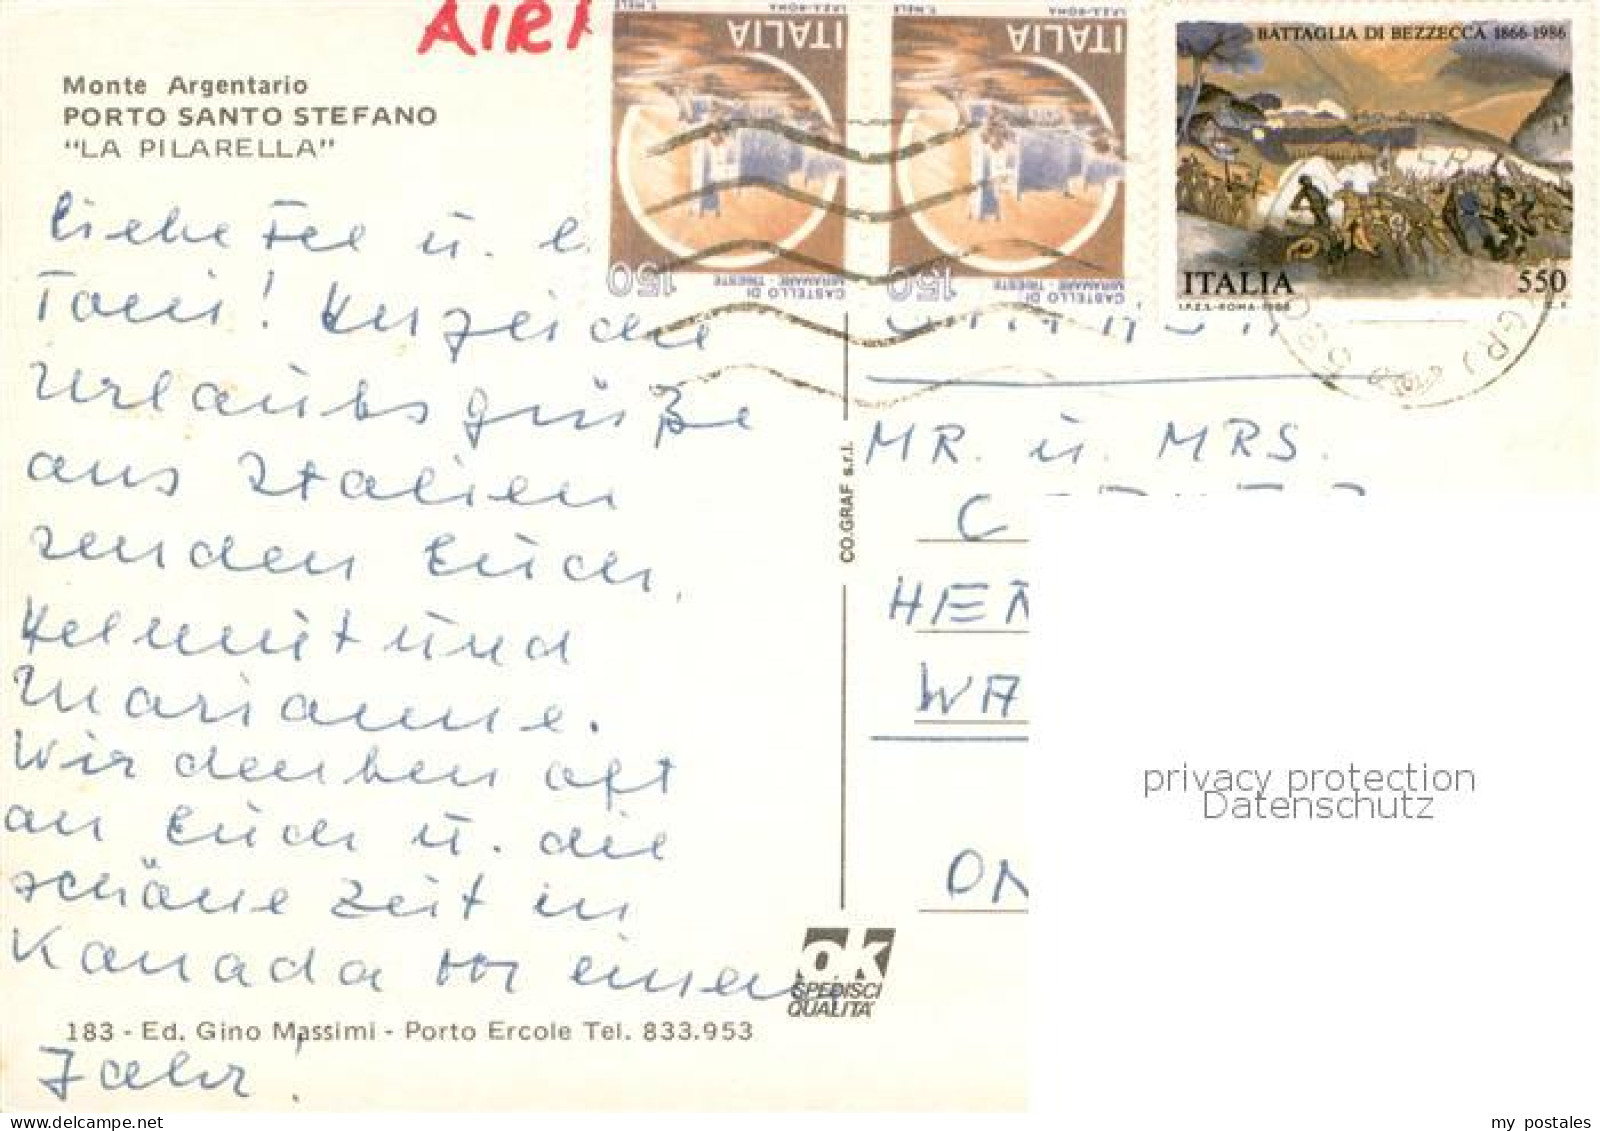 AIR
Monte Argentario
PORTO SANTO STEFANO
"LA PILARELLA"
Liebe Fee u. l.
Toni! Herzliche
Urlaubsgrüße
aus Italien
senden Euch,
Helmut und
Marianne.
Wir denken oft
an Euch u. die
schöne Zeit in
Kanada vor einem
Jahr!
183 - Ed. Gino Massimi - Porto Ercole Tel. 833.953
CO.GRAF s.r.l.
ok
SPEDISCI
QUALITA'
T. MELE I.P.Z.S.-ROMA
ITALIA
150
CASTELLO DI
MIRAMARE - TRIESTE
T. MELE I.P.Z.S.-ROMA
ITALIA
150
CASTELLO DI
MIRAMARE - TRIESTE
BATTAGLIA DI BEZZECCA 1866-1986
ITALIA 550
I.P.Z.S.-ROMA-1986
MR. u. MRS.
C
HE
WA
ON
privacy protection
Datenschutz
my postales
www.delcampe.net